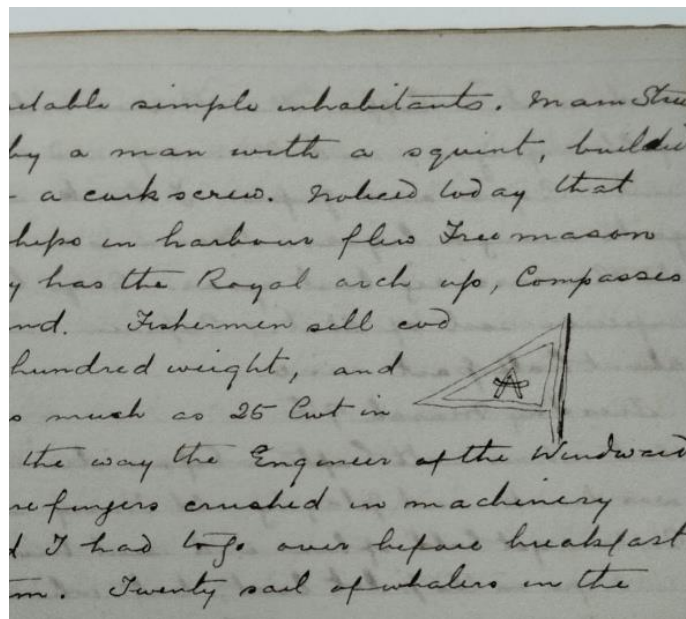 simple inhabitants. Main Stre
by a man with a squint, buildi
a cork screw. Noticed today that
hips in harbour flew Freemason
y has the Royal arch up, Compasses
nd. Fishermen sell cod
hundred weight, and
s much as 25 Cwt in
the way the Engineer of the Windward
re fingers crushed in machinery
d I had to go over before breakfast
m. Twenty sail of whalers in the